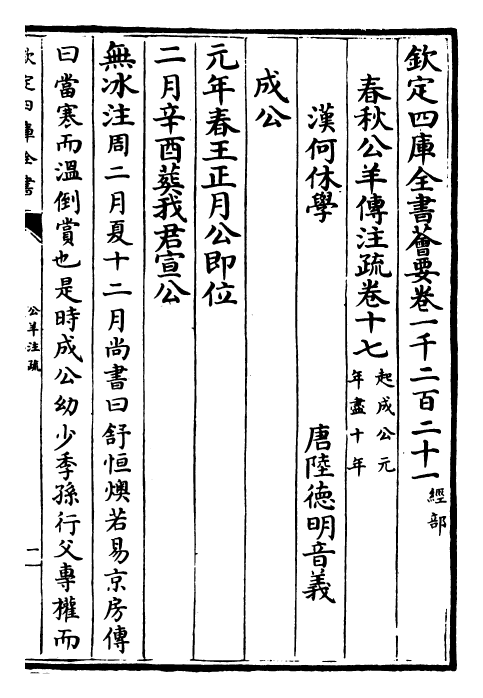 欽定四庫全書薈要卷一千二百二十一經部
春秋公羊傳注疏卷十七起成公元年盡十年
漢何休學　唐陸德明音義
成公
元年春王正月公即位
二月辛酉葬我君宣公
無冰注周二月夏十二月尚書曰舒恒燠若易京房傳
曰當寒而溫倒賞也是時成公幼少季孫行父專權而
欽定四庫全書
公羊注疏
一